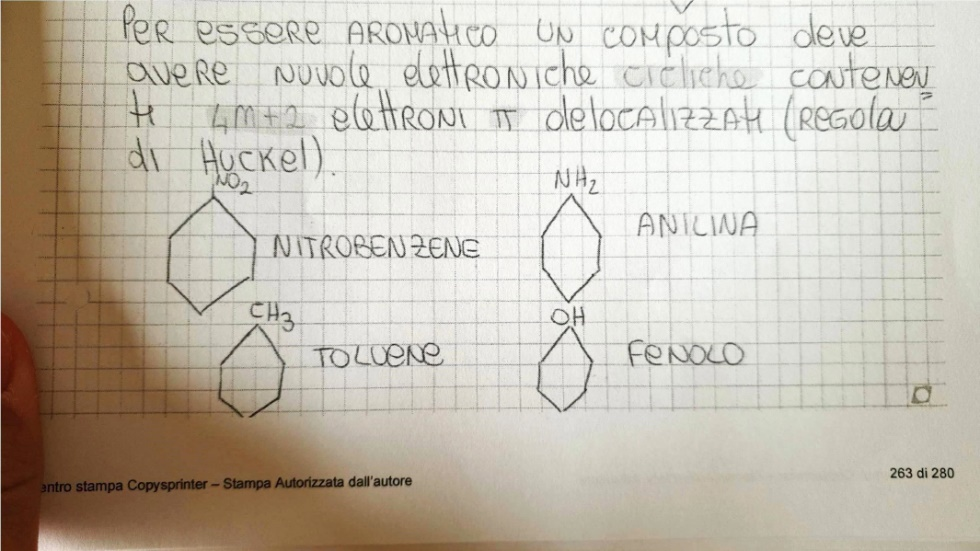 PER ESSERE AROMATICO UN COMPOSTO deve
avere NUVOLE elettRONIChe cicliche CONTENEN
ti 4m+2 elettRONI π delocalizzati (REGOLA
di Huckel).
NO2
NH2
NITROBENZENE
ANILINA
CH3
OH
TOLUENE
FENOLO
entro stampa Copysprinter – Stampa Autorizzata dall'autore
263 di 280